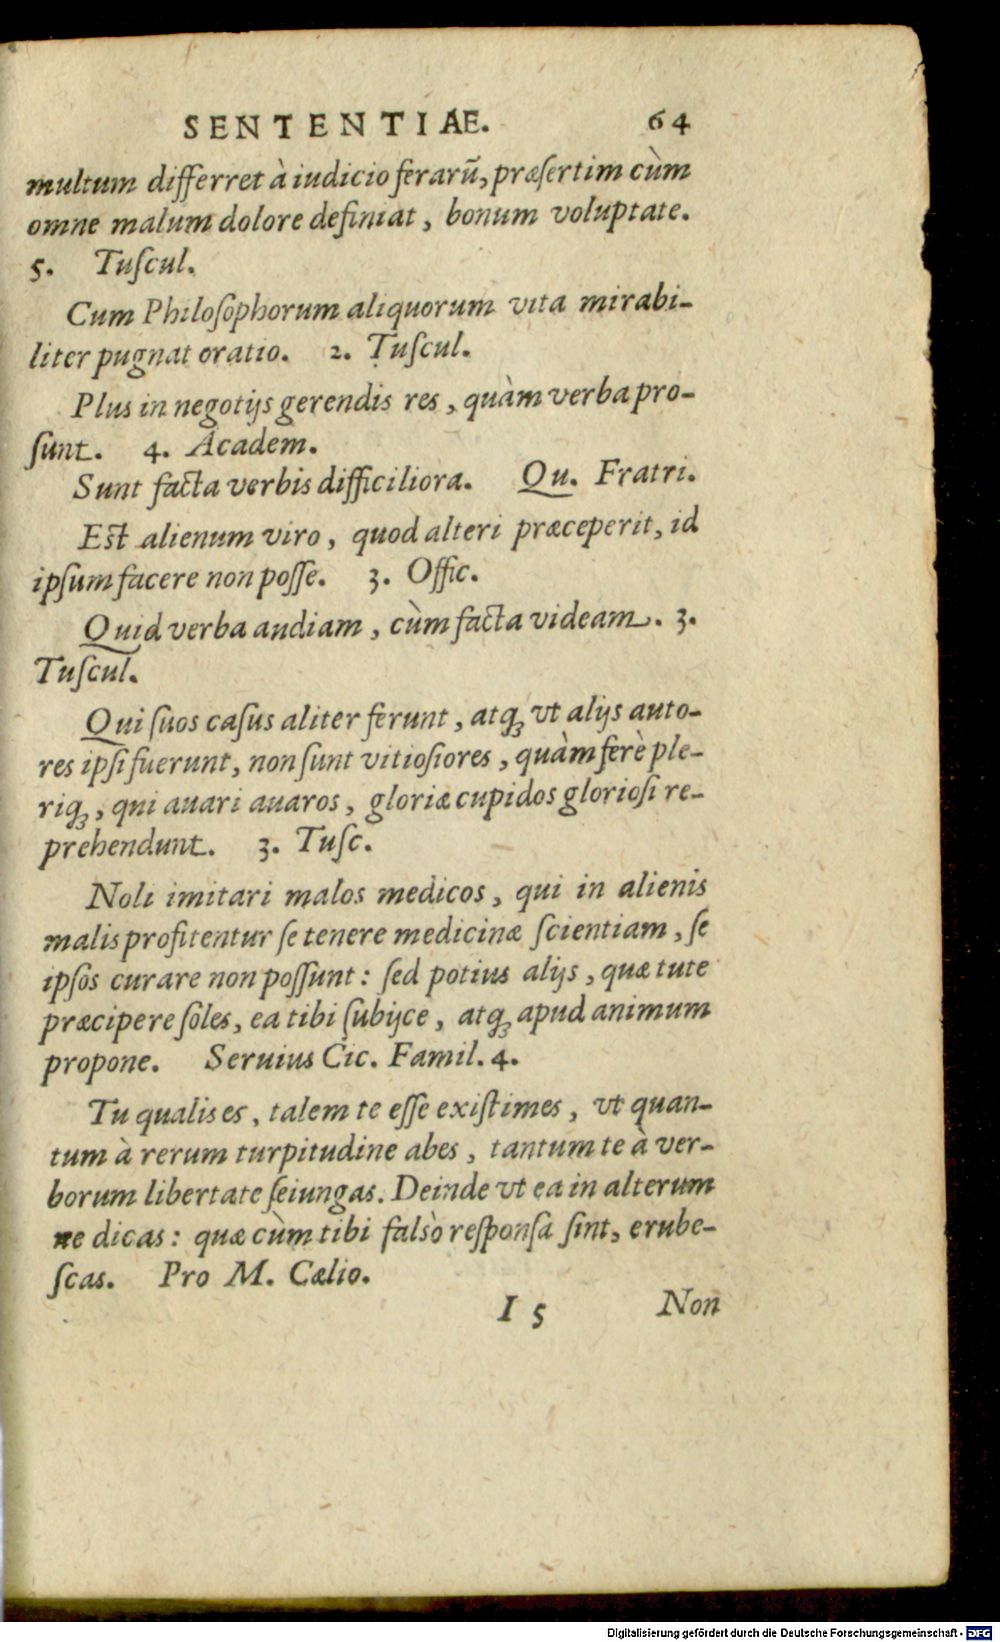 SENTENTIAE. 64
multum differret à iudicio ferarū, præſertim cùm
omne malum dolore definiat, bonum voluptate.
5. Tuſcul.
Cum Philoſophorum aliquorum vita mirabi-
liter pugnat oratio. 2. Tuſcul.
Plus in negotijs gerendis res, quàm verba pro-
ſunt. 4. Academ.
Sunt facta verbis difficiliora. Qu. Fratri.
Eſt alienum viro, quod alteri præceperit, id
ipſum facere non poſſe. 3. Offic.
Quid verba audiam, cùm facta videam. 3.
Tuſcul.
Qui ſuos caſus aliter ferunt, atq; vt alijs auto-
res ipſi fuerunt, non ſunt vitioſiores, quàm ferè ple-
riq;, qui auari auaros, gloriæ cupidos glorioſi re-
prehendunt. 3. Tuſc.
Noli imitari malos medicos, qui in alienis
malis profitentur ſe tenere medicinæ ſcientiam, ſe
ipſos curare non poſſunt: ſed potius alijs, quæ tute
præcipere ſoles, ea tibi ſubijce, atq; apud animum
propone. Seruius Cic. Famil. 4.
Tu qualis es, talem te eſſe exiſtimes, vt quan-
tum à rerum turpitudine abes, tantum te à ver-
borum libertate ſeiungas. Deinde vt ea in alterum
ne dicas: quæ cùm tibi falsò reſponſa ſint, erube-
ſcas. Pro M. Cælio.
I 5 Non
Digitalisierung gefördert durch die Deutsche Forschungsgemeinschaft - DFG